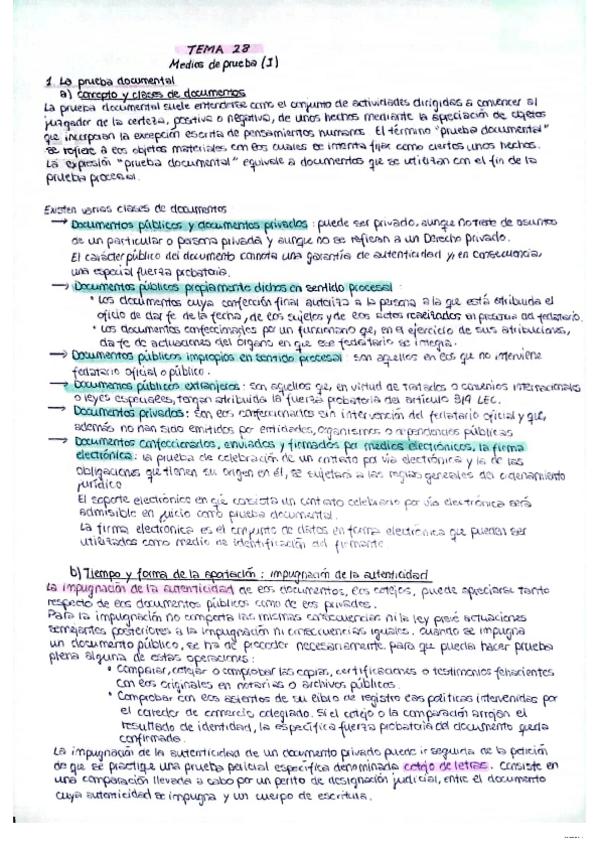 TEMA 28
Medios de prueba (I)
1. La prueba documental
a) Concepto y clases de documentos
La prueba documental suele entenderse como el conjunto de actividades dirigidas a convencer al
juzgador de la certeza, positiva o negativa, de unos hechos mediante la apreciación de objetos
que incorporan la excepción escrita de pensamientos humanos. El término "prueba documental"
se refiere a los objetos materiales con los cuales se intenta fijar como ciertos unos hechos.
La expresión "prueba documental" equivale a documentos que se utilizan con el fin de la
prueba procesal.
Existen varias clases de documentos
→ Documentos públicos y documentos privados: puede ser privado, aunque no trate de asuntos
de un particular o persona privada y aunque no se refieran a un Derecho privado.
El carácter público del documento connota una garantía de autenticidad y, en consecuencia,
una especial fuerza probatoria.
→ Documentos públicos propiamente dichos en sentido procesal:
• Los documentos cuya confección final autoriza a la persona a la que está atribuida el
oficio de dar fe de la fecha, de los sujetos y de los actos realizados en presencia del fedatario.
• Los documentos confeccionados por un funcionario que, en el ejercicio de sus atribuciones,
da fe de actuaciones del órgano en que ese fedatario se integra.
→ Documentos públicos impropios en sentido procesal: son aquellos en los que no interviene
fedatario oficial o público.
→ Documentos públicos extranjeros: son aquellos que, en virtud de tratados o convenios internacionales
o leyes especiales, tengan atribuida la fuerza probatoria del artículo 319 LEC.
→ Documentos privados: son los confeccionados sin intervención del fedatario oficial y que,
además no han sido emitidos por entidades, organismos o dependencias públicas
→ Documentos confeccionados, enviados y firmados por medios electrónicos, la firma
electrónica: la prueba de celebración de un contrato por vía electrónica y la de las
obligaciones que tienen su origen en él, se sujetará a las reglas generales del ordenamiento
jurídico
El soporte electrónico en que consista un contrato celebrado por vía electrónica será
admisible en juicio como prueba documental.
La firma electrónica es el conjunto de datos en forma electrónica que pueden ser
utilizados como medio de identificación del firmante.
b) Tiempo y forma de la aportación: impugnación de la autenticidad
La impugnación de la autenticidad de los documentos, los cotejos, puede apreciarse tanto
respecto de los documentos públicos como de los privados.
Para la impugnación no comporta las mismas consecuencias ni la ley prevé actuaciones
semejantes posteriores a la impugnación ni consecuencias iguales. Cuando se impugna
un documento público, se ha de proceder necesariamente, para que pueda hacer prueba
plena alguna de estas operaciones:
• Comparar, cotejar o comprobar las copias, certificaciones o testimonios fehacientes
con los originales en notarías o archivos públicos.
• Comprobar con los asientos de su libro de registro las políticas intervenidas por
el corredor de comercio colegiado. Si el cotejo o la comparación arrojan el
resultado de identidad, la específica fuerza probatoria del documento queda
confirmada.
La impugnación de la autenticidad de un documento privado puede ir seguida de la petición
de que se practique una prueba pericial específica denominada cotejo de letras. Consiste en
una comparación llevada a cabo por un perito de designación judicial, entre el documento
cuya autenticidad se impugna y un cuerpo de escritura.